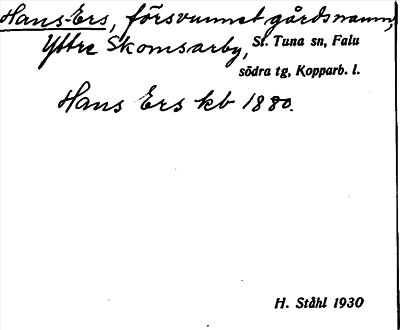 Hans-Ers, försvunnet gårdsnamn,
Yttre Skomsarby, St. Tuna sn, Falu
södra tg, Kopparb. l.
Hans Ers kb 1880.
H. Ståhl 1930